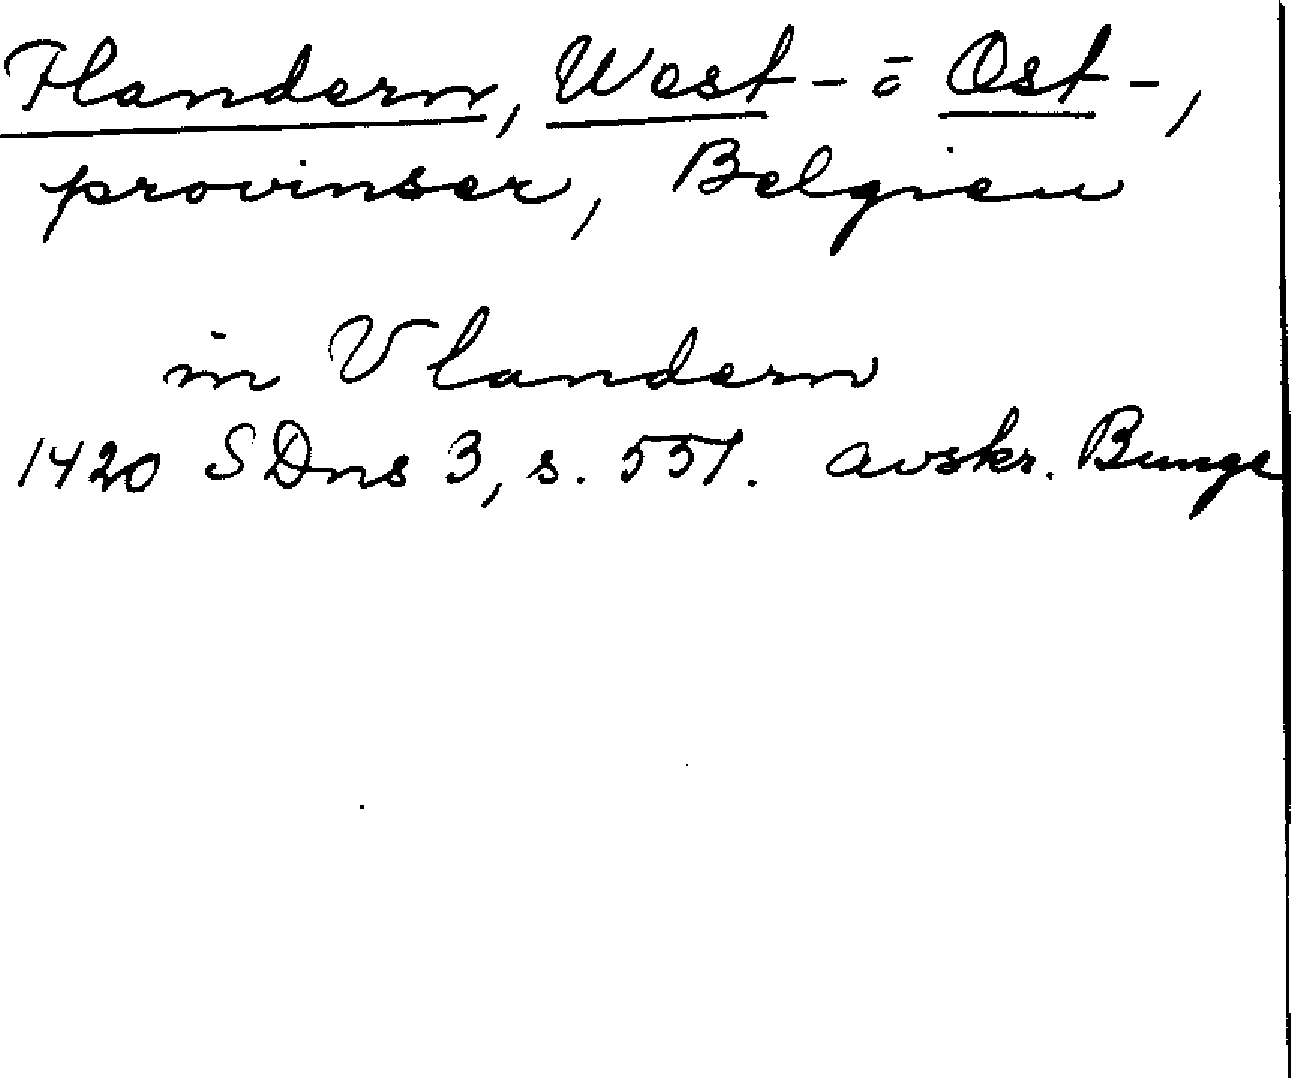 Flandern, West- o Ost-,
provinser, Belgien
in Vlandern
1420 SDns 3, s. 557. avskr. Bunge